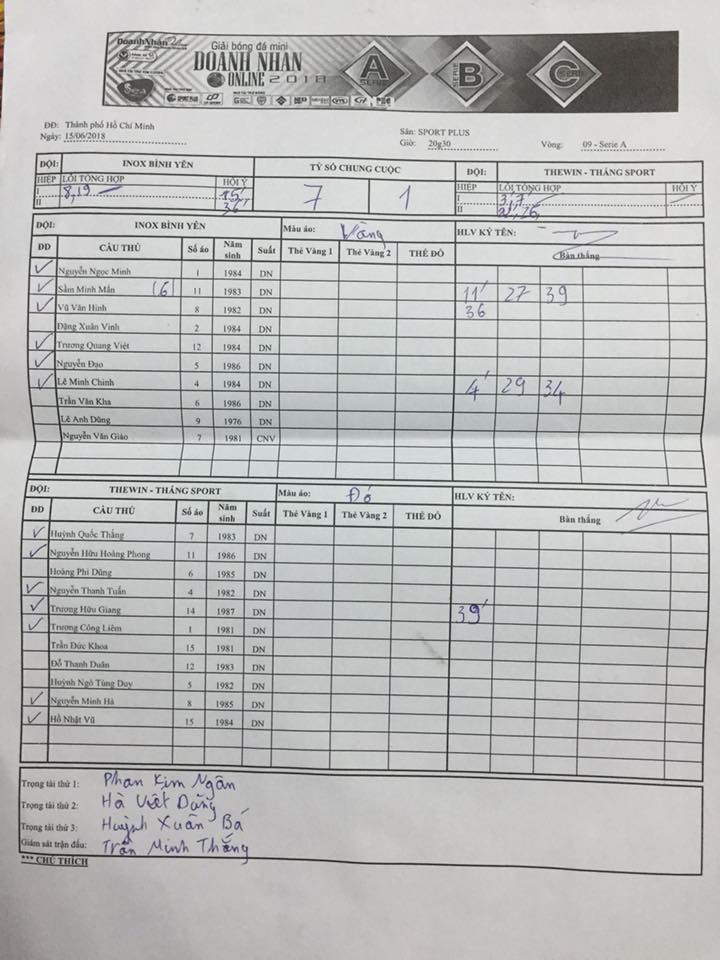 DoanhNhan
Giải bóng đá mini
DOANH NHÂN
ONLINE 2018
SERIE A
SERIE B
SERIE C
SPORT PLUS
ĐĐ: Thành phố Hồ Chí Minh
Ngày: 15/06/2018
Sân: SPORT PLUS
Giờ: 20g30 Vòng: 09 - Serie A
ĐỘI: INOX BÌNH YÊN TỶ SỐ CHUNG CUỘC ĐỘI: THEWIN - THẮNG SPORT
HIỆP LỖI TỔNG HỢP HỘI Ý 7 1 HIỆP LỖI TỔNG HỢP HỘI Ý
I 8,19 15' I 3,7
II 36' II
ĐỘI: INOX BÌNH YÊN Màu áo: Vàng HLV KÝ TÊN:
ĐD CẦU THỦ Số áo Năm sinh Suất Thẻ Vàng 1 Thẻ Vàng 2 THẺ ĐỎ Bàn thắng
Nguyễn Ngọc Minh 1 1984 DN
Sầm Minh Mẫn (6) 11 1983 DN 11' 27 39
Vũ Văn Hinh 8 1982 DN 36
Đặng Xuân Vinh 2 1984 DN
Trương Quang Việt 12 1984 DN
Nguyễn Đạo 5 1986 DN
Lê Minh Chinh 4 1984 DN 4' 29 34
Trần Văn Kha 6 1986 DN
Lê Anh Dũng 9 1976 DN
Nguyễn Văn Giáo 7 1981 CNV
ĐỘI: THEWIN - THẮNG SPORT Màu áo: Đỏ HLV KÝ TÊN:
ĐD CẦU THỦ Số áo Năm sinh Suất Thẻ Vàng 1 Thẻ Vàng 2 THẺ ĐỎ Bàn thắng
Huỳnh Quốc Thắng 7 1983 DN
Nguyễn Hữu Hoàng Phong 11 1986 DN
Hoàng Phi Dũng 6 1985 DN
Nguyễn Thanh Tuấn 4 1982 DN
Trương Hữu Giang 14 1987 DN 39'
Trương Công Liêm 1 1981 DN
Trần Đức Khoa 15 1981 DN
Đỗ Thanh Duẩn 12 1983 DN
Huỳnh Ngô Tùng Duy 5 1982 DN
Nguyễn Minh Hà 8 1985 DN
Hồ Nhật Vũ 15 1984 DN
Trọng tài thứ 1: Phan Kim Ngân
Trọng tài thứ 2: Hà Việt Dũng
Trọng tài thứ 3: Huỳnh Xuân Bá
Giám sát trận đấu: Trần Minh Thắng
*** CHÚ THÍCH